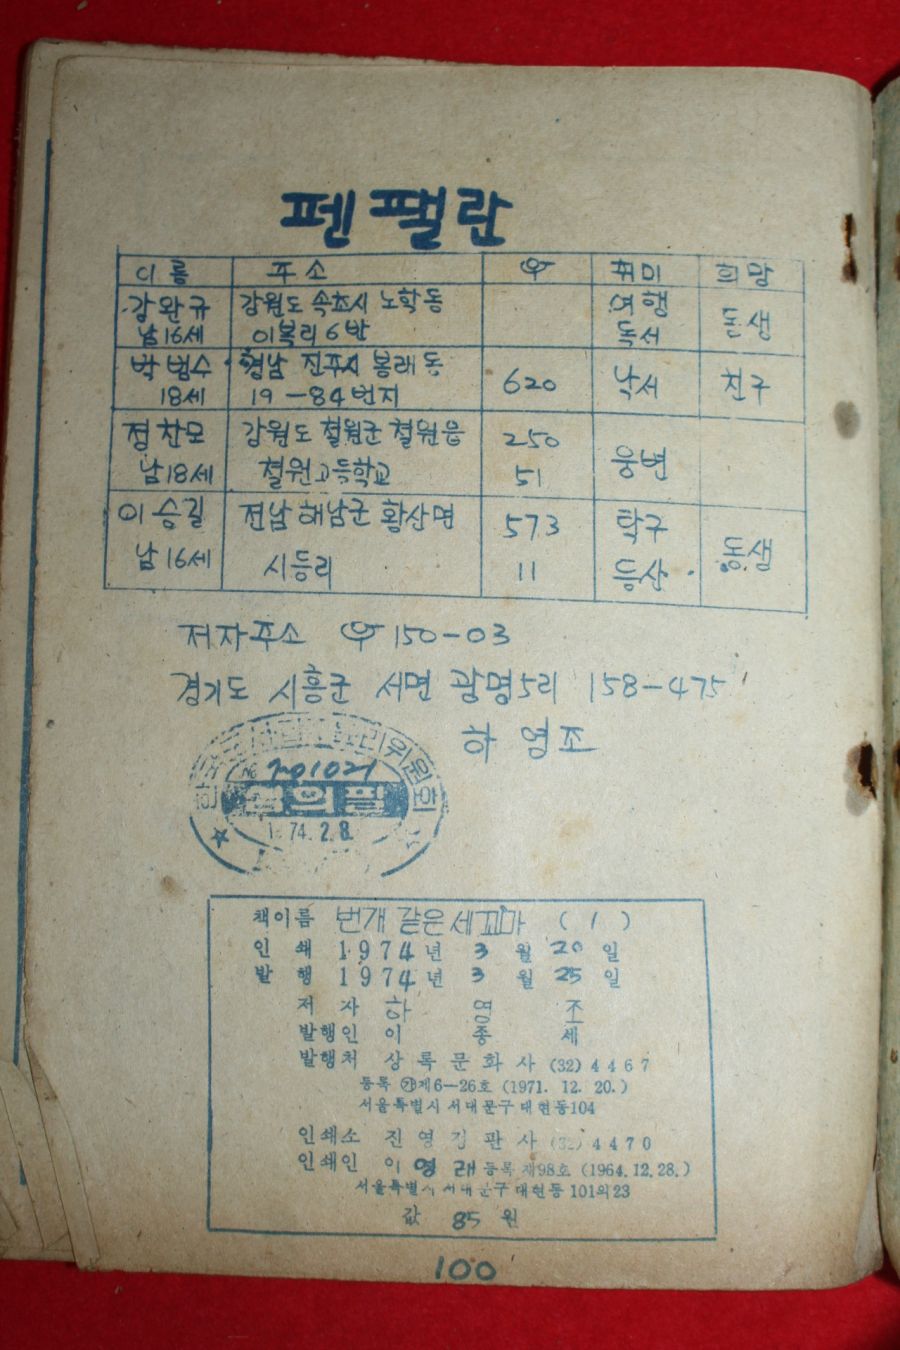 펜팔란
이름 주소 ㉾ 취미 희망
강완규 강원도 속초시 노학동 여행 동생
남16세 이복리 6반 독서
박범수 경남 진주시 봉래동 620 낙서 친구
18세 19-84번지
정찬모 강원도 철원군 철원읍 250 웅변
남18세 철원고등학교 51
이승길 전남 해남군 황산면 573 탁구 동생
남16세 시등리 11 등산
저자주소 ㉾ 150-03
경기도 시흥군 서면 광명5리 158-475
하영조
№ 201021
심의필
74.2.8
책이름 번개 같은 세꼬마 (1)
인쇄 1974년 3월 20일
발행 1974년 3월 25일
저자 하영조
발행인 이종세
발행처 상록문화사 (32)4467
등록 ㉮제6-26호 (1971. 12. 20.)
서울특별시 서대문구 대현동104
인쇄소 진영김판사 (32)4470
인쇄인 이영래 등록 제98호 (1964.12.28.)
서울특별시 서대문구 대현동 101의23
값 85원
100